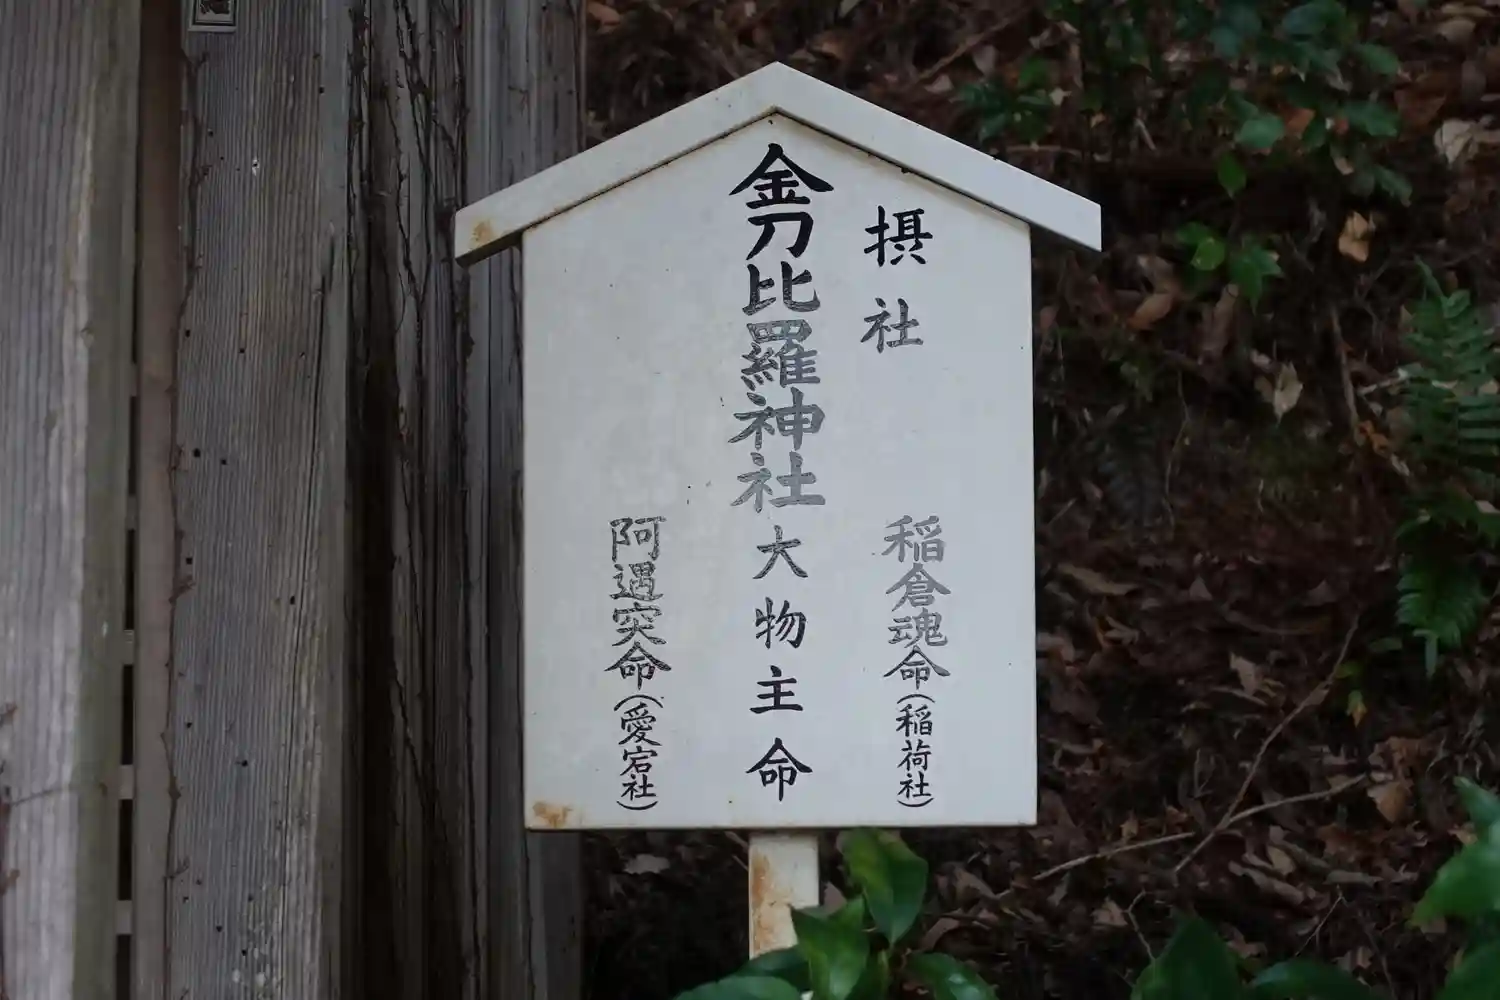 摂社
稲倉魂命(稲荷社)
金刀比羅神社 大物主命
阿遇突命(愛宕社)